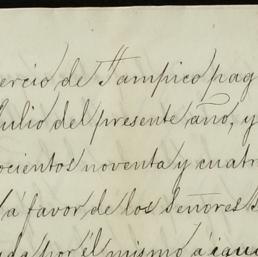 ercio de Tampico pag
Julio del presente año, y
ocientos noventa y cuatr
a favor de los Señores
por él mismo á